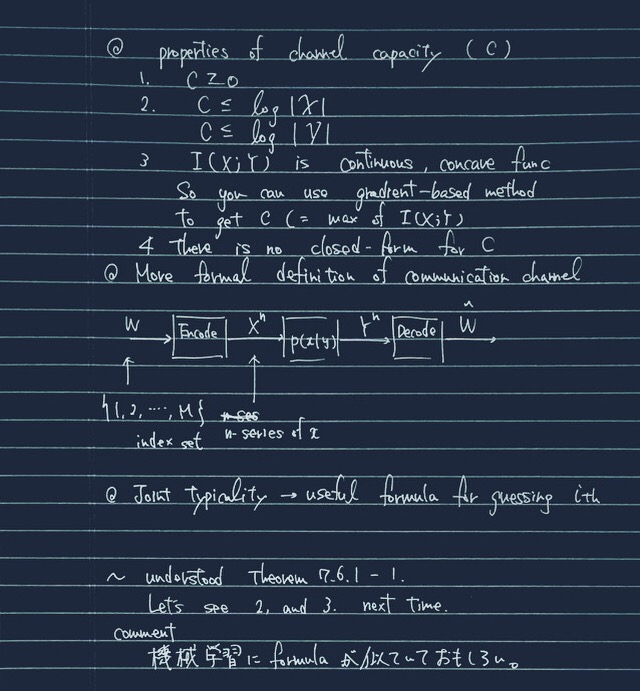 @ properties of channel capacity (C)
1. C ≥ 0
2. C ≤ log |X|
C ≤ log |Y|
3 I(X;Y) is continuous, concave func
So you can use gradient-based method
to get C (= max of I(X;Y)
4 There is no closed-form for C
@ More formal definition of communication channel
W Encode Xⁿ p(x|y) Yⁿ Decode Ŵ
{1, 2, ..., M}
index set n-series of x
@ Joint Typicality → useful formula for guessing ith
~ understood Theorem 7.6.1 - 1.
Let's see 2, and 3. next time.
comment
機械学習に formula が似ていておもしろい。